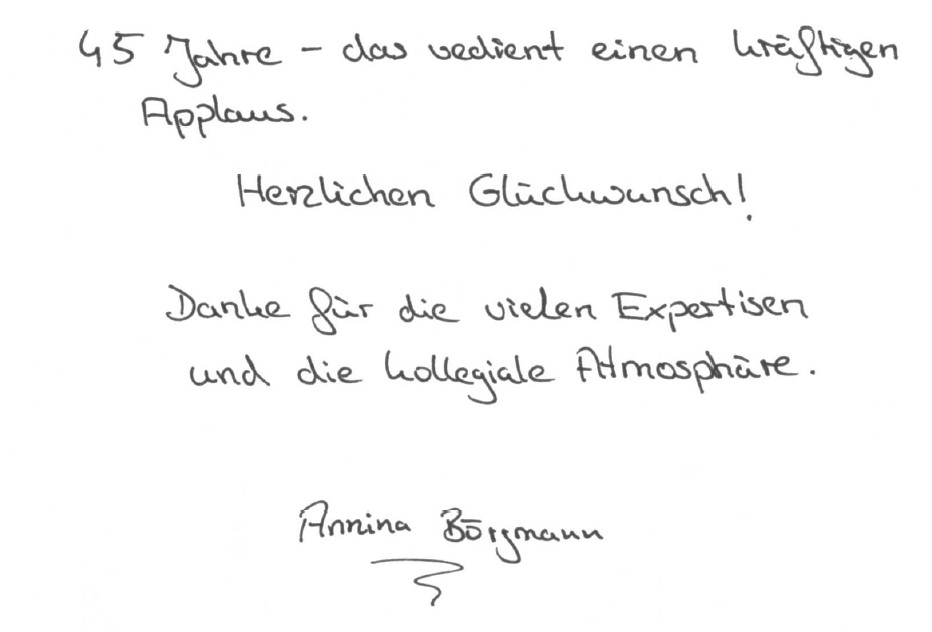 45 Jahre – das vedient einen kräftigen
Applaus.
Herzlichen Glückwunsch!
Danke für die vielen Expertisen
und die kollegiale Atmosphäre.
Annina Börgmann